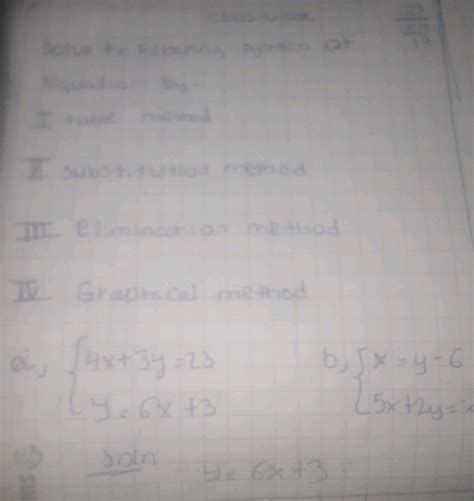 Classwork
Solve the following system of
Equation by:-
I table method
II substitution method
III Elimination method
IV Graphical method
a, { 4x+3y=23
y=6x+3
b, { x=y-6
5x+2y=
Soln
y=6x+3